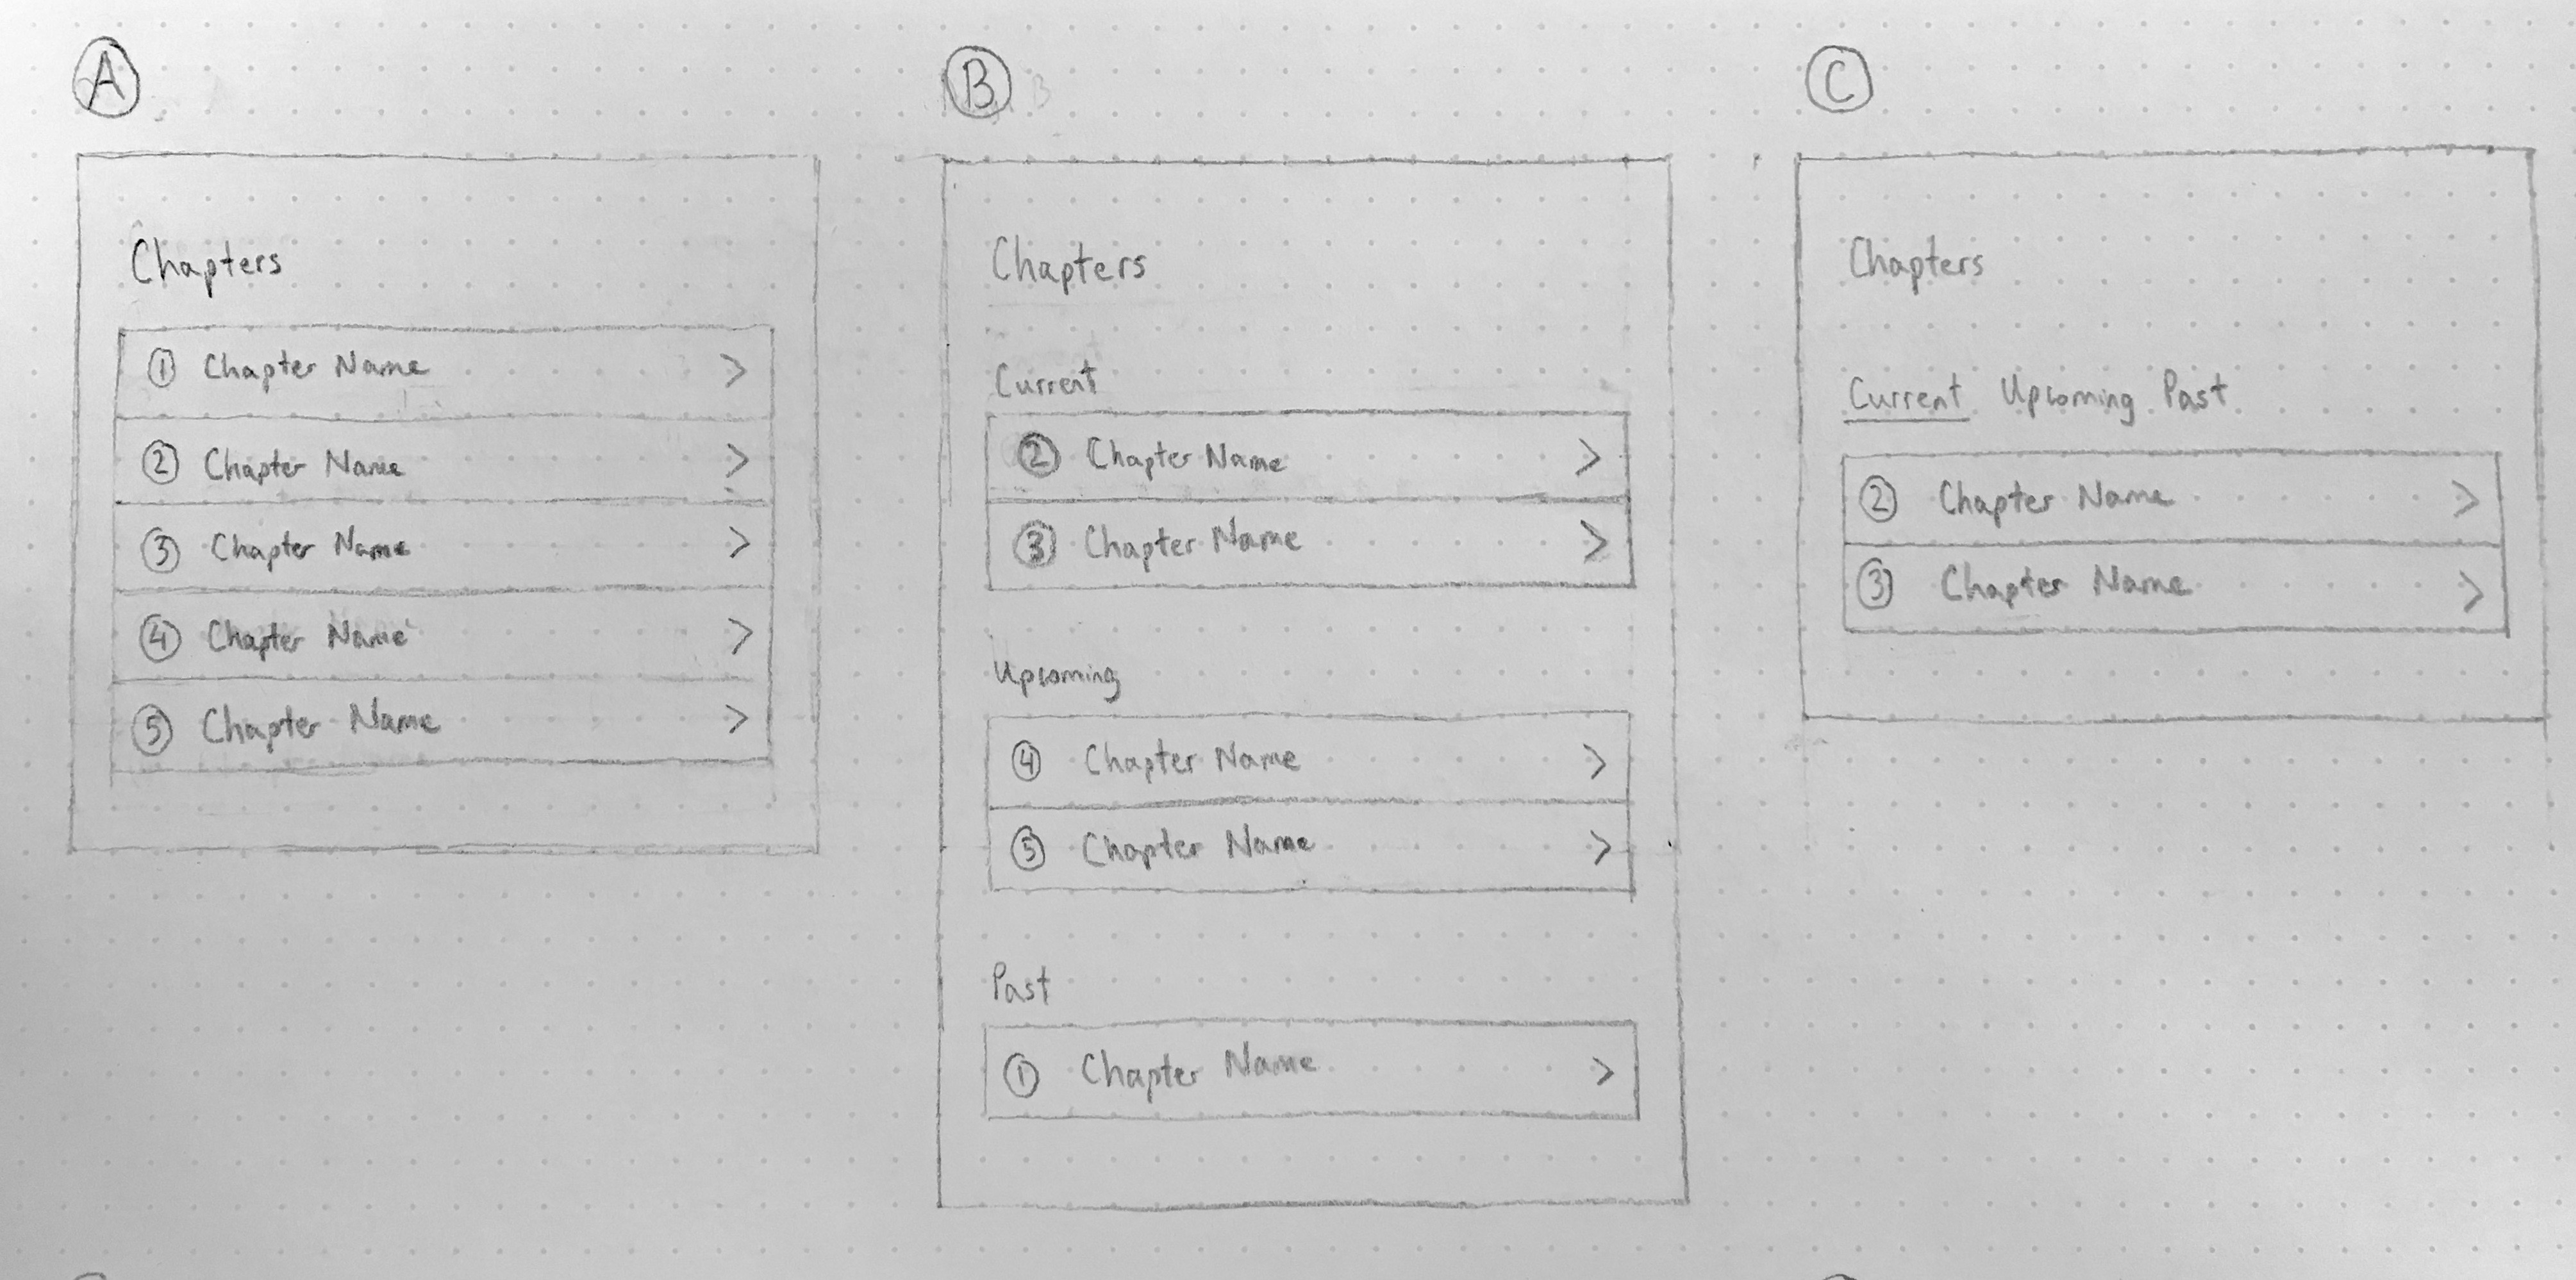 A
Chapters
1 Chapter Name >
2 Chapter Name >
3 Chapter Name >
4 Chapter Name >
5 Chapter Name >
B
Chapters
Current
2 Chapter Name >
3 Chapter Name >
Upcoming
4 Chapter Name >
5 Chapter Name >
Past
1 Chapter Name >
C
Chapters
Current Upcoming Past
2 Chapter Name >
3 Chapter Name >